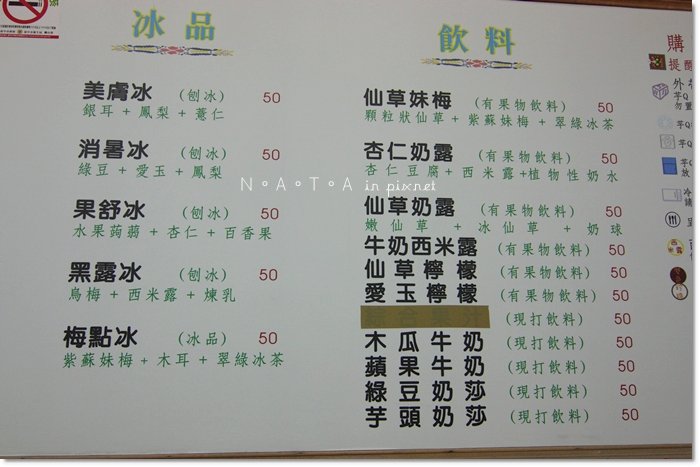 冰品
美膚冰 (刨冰) 50
銀耳+鳳梨+薏仁
消暑冰 (刨冰) 50
綠豆+愛玉+鳳梨
果舒冰 (刨冰) 50
水果蒟蒻+杏仁+百香果
黑露冰 (刨冰) 50
烏梅+西米露+煉乳
梅點冰 (冰品) 50
紫蘇妹梅+木耳+翠綠冰茶
飲料
仙草妹梅 (有果物飲料) 50
顆粒狀仙草+紫蘇妹梅+翠綠冰茶
杏仁奶露 (有果物飲料) 50
杏仁豆腐+西米露+植物性奶水
仙草奶露 (有果物飲料) 50
嫩仙草+冰仙草+奶球
牛奶西米露 (有果物飲料) 50
仙草檸檬 (有果物飲料) 50
愛玉檸檬 (有果物飲料) 50
綜合果汁 (現打飲料) 50
木瓜牛奶 (現打飲料) 50
蘋果牛奶 (現打飲料) 50
綠豆奶莎 (現打飲料) 50
芋頭奶莎 (現打飲料) 50
購
提醒
外
芋Q
勿置
芋Q
芋Q
放
N。A。T。A in pixnet